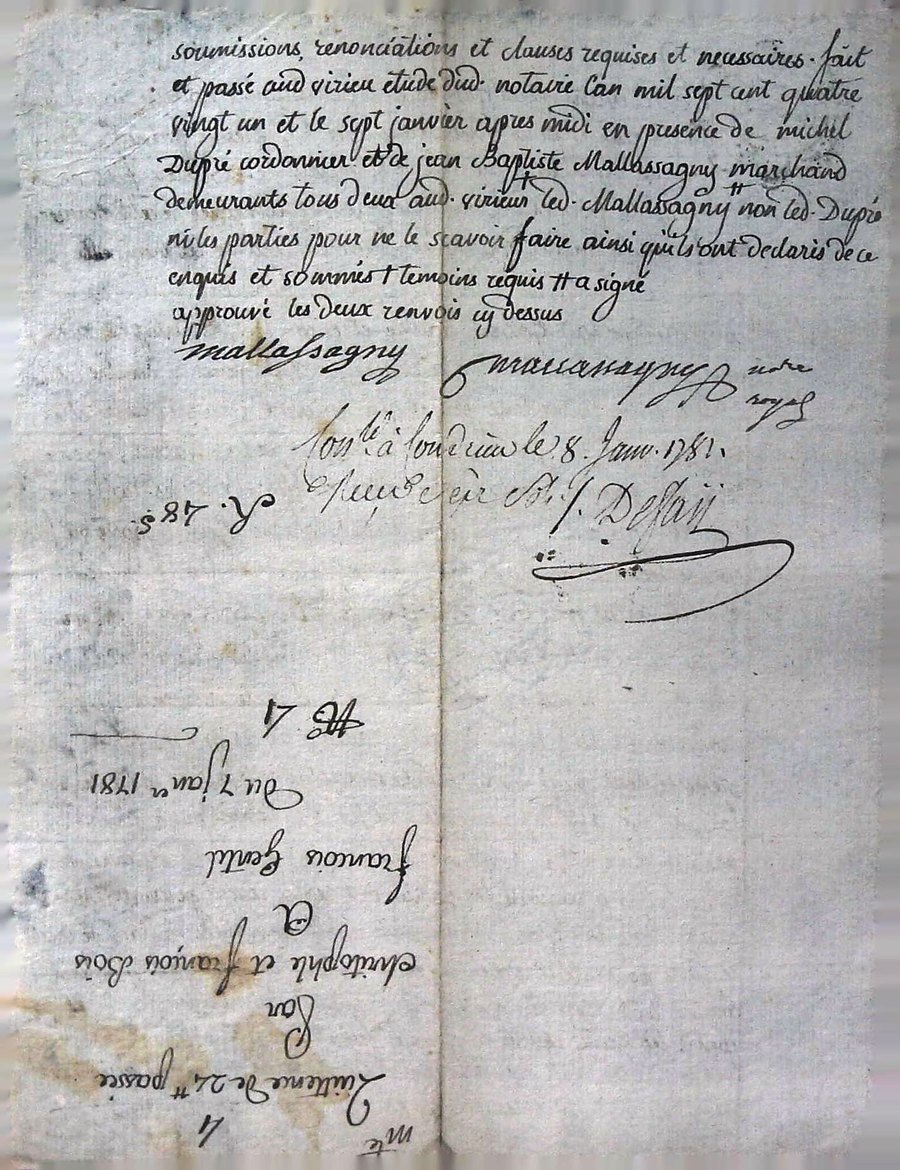 soumissions, renonciations et clauses requises et necessaires. fait
et passé aud virieu etude dud. notaire l'an mil sept cent quatre
vingt un et le sept janvier apres midi en presence de michel
Dupré cordonnier et de jean Baptiste Mallassagny marchand
demeurants tous deux aud. virieu † led. Mallassagny †† non led. Dupré
ni les parties pour ne le scavoir faire ainsi quils ont declaris de ce
enquis et sommés † temoins requis †† a signé
approuvé les deux renvois cy dessus
mallassagny mallassagny notre
royal
Con.lé à Condrieu le 8. Janv. 1781.
R. 48 s.
N° 4
du 7 janer 1781
francois Gentil
A
christophle et françois Bois
Par
Quittence de 24 ₶ passée
4
mte